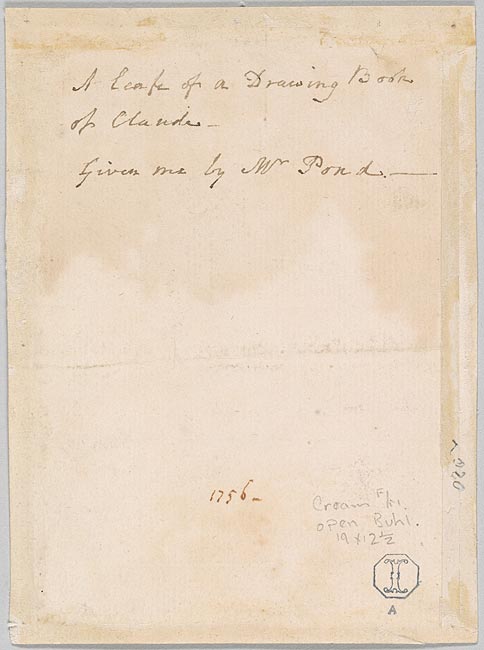 A Leafe of a Drawing Book
of Claude –
Given me by Mr Pond. —
1756 –
Cream
open Buhl.
19 x 12 ½
I
A